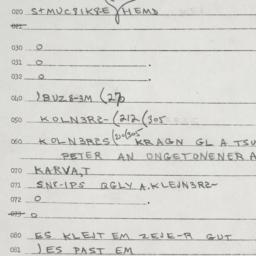 020 STMUC8IK8E HEMD
021
030 0
031 0
032 0
040 )BUZ8-3M (27
050 KOLN3RZ- (212 (305
060 KOLN3RZS KRAGN GL A TSU
PETER AN ONGETONENER A
070 KARVA,T
071 SNI-IPS QGLY A.KLEJN3RZ-
072 0
073 0
080 ES KLEJT EM ZEJE-R GUT
081 )ES PAST EM